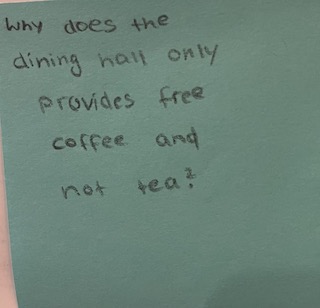 Why does the
dining hall only
provides free
coffee and
not tea?